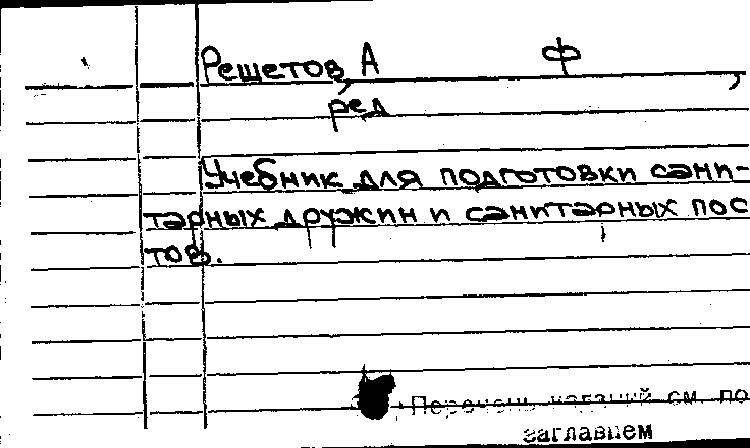 Решетов, А Ф,
ред
Учебник для подготовки сани-
тарных дружин и санитарных пос
тов.
Перечень изданий см. по
заглавием